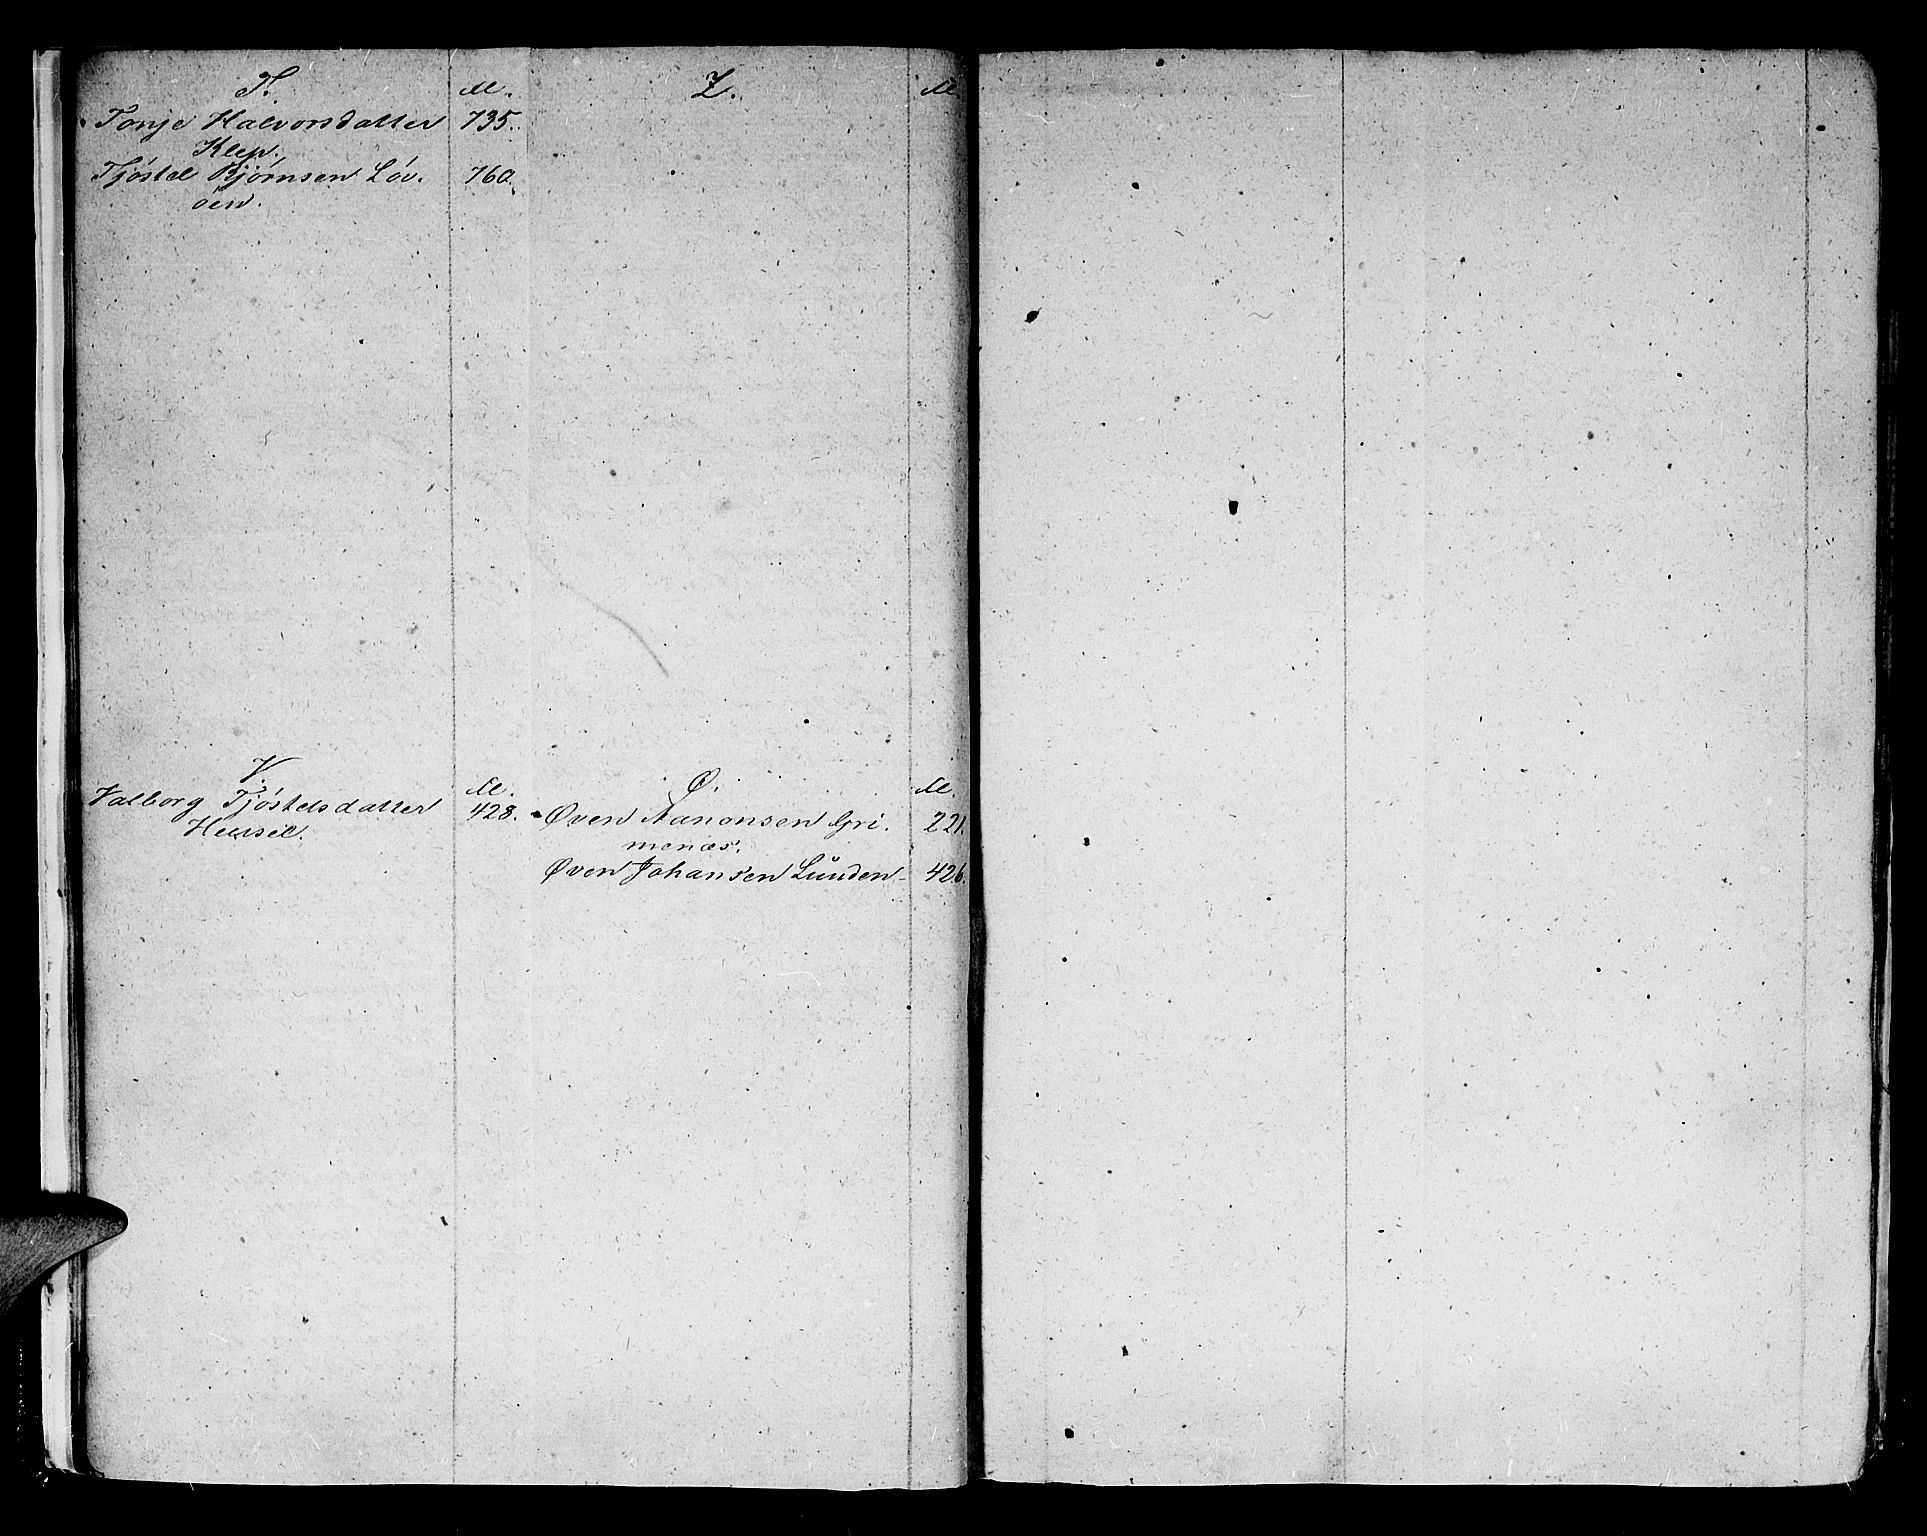 T. M.
Tonje Halvorsdatter 735.
Klep.
Tjøstel Bjørnsen Løv. 760.
øen.
V. M.
Valborg Tjøstelsdatter 428.
Heusel.
Z. M
Ø. M.
Øven Aanonsen Gri. 221.
menæs.
Øven Johansen Lunden 426.